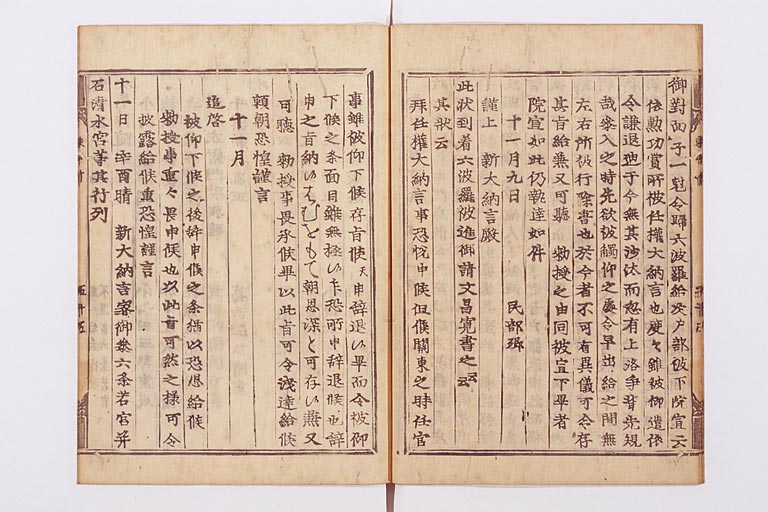 御對面子一尅令歸六波羅給次戸部被下院宣云
依勲功賞所被任權大納言也度々雖被仰遣依
令謙退逕于今無其沙汰而忽有上洛爭背先規
哉參入之時先欲被觸仰之處令早出給之間無
左右所被行除書也於今者不可有異儀可令存
其旨給兼又可聽勅授之由同被宣下畢者
院宣如此仍執達如件
十一月九日 民部卿
謹上 新大納言殿
此状到着六波羅被進御請文昌寛書之云云
其状云
拜任權大納言事恐悦申候但候關東之時任官
事雖被仰下候存旨候天申辞退以畢而令被仰
下候之条面目雖無極以乍恐所申辞退候也辞
申之旨納いはむをもて朝恩深と可存以兼又
可聽云勅授事畏承候畢以此旨可令洩達給候
頼朝恐惶謹言
十一月
追啓
被仰下候之後辞申候之条猶以恐思給候
勅授事重々畏申候也以此旨可然之様可令
披露給候重恐惶謹言
十一日 辛酉晴 新大納言家御參六条若宮并
石清水宮等其行列